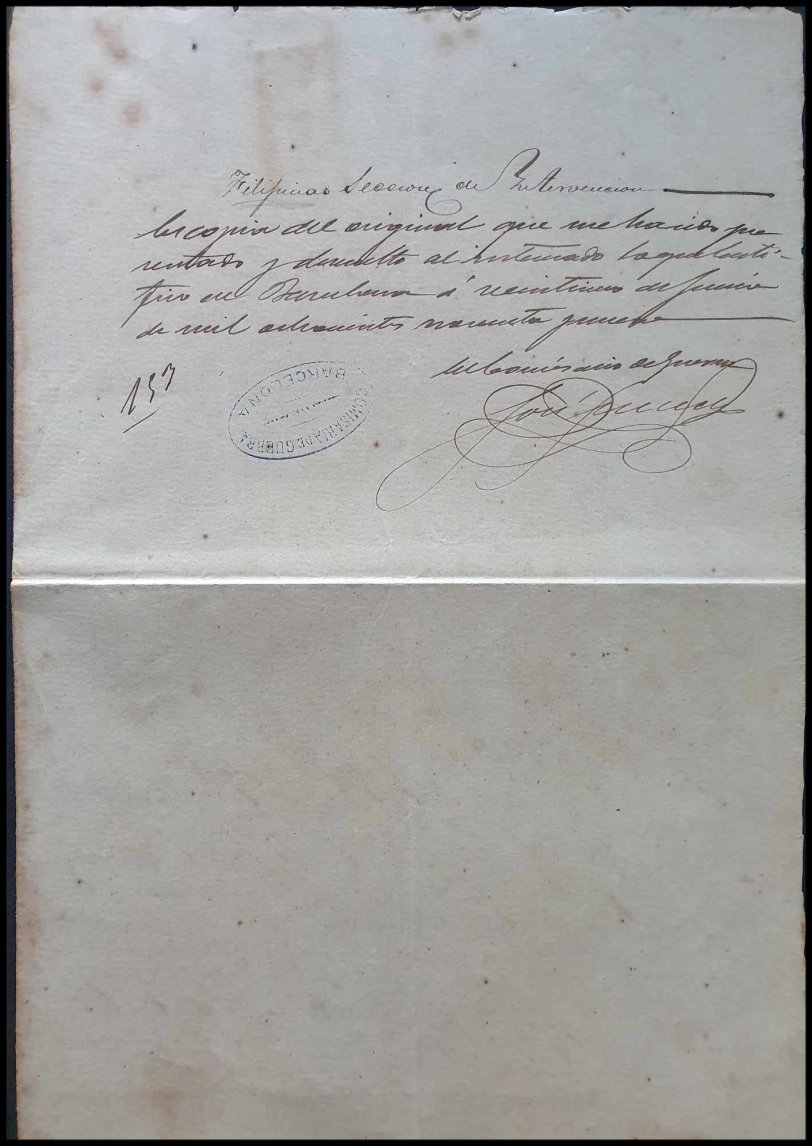 Filipinas Seccion de Intervencion
Es copia del original que me ha sido pre
sentado y devuelto al interesado la que certi-
fico en Barcelona á veintiuno de Junio
de mil ochocientos noventa y nueve
El Comisario de Guerra
José
153
COMISARIA DE GUERRA
BARCELONA